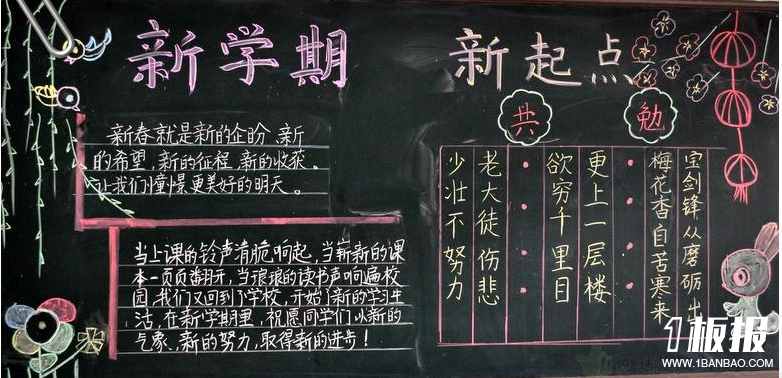 新学期 新起点
共勉
新春就是新的企盼、新
的希望，新的征程，新的收获。
让我们憧憬更美好的明天。
当上课的铃声清脆响起，当崭新的课
本一页页翻开，当琅琅的读书声响遍校
园，我们又回到了学校，开始了新的学习生
活，在新学期里，祝愿同学们以新的
气象、新的努力，取得新的进步！
少壮不努力
老大徒伤悲
欲穷千里目
更上一层楼
梅花香自苦寒来
宝剑锋从磨砺出
1板报
WWW.1BANBAO.COM